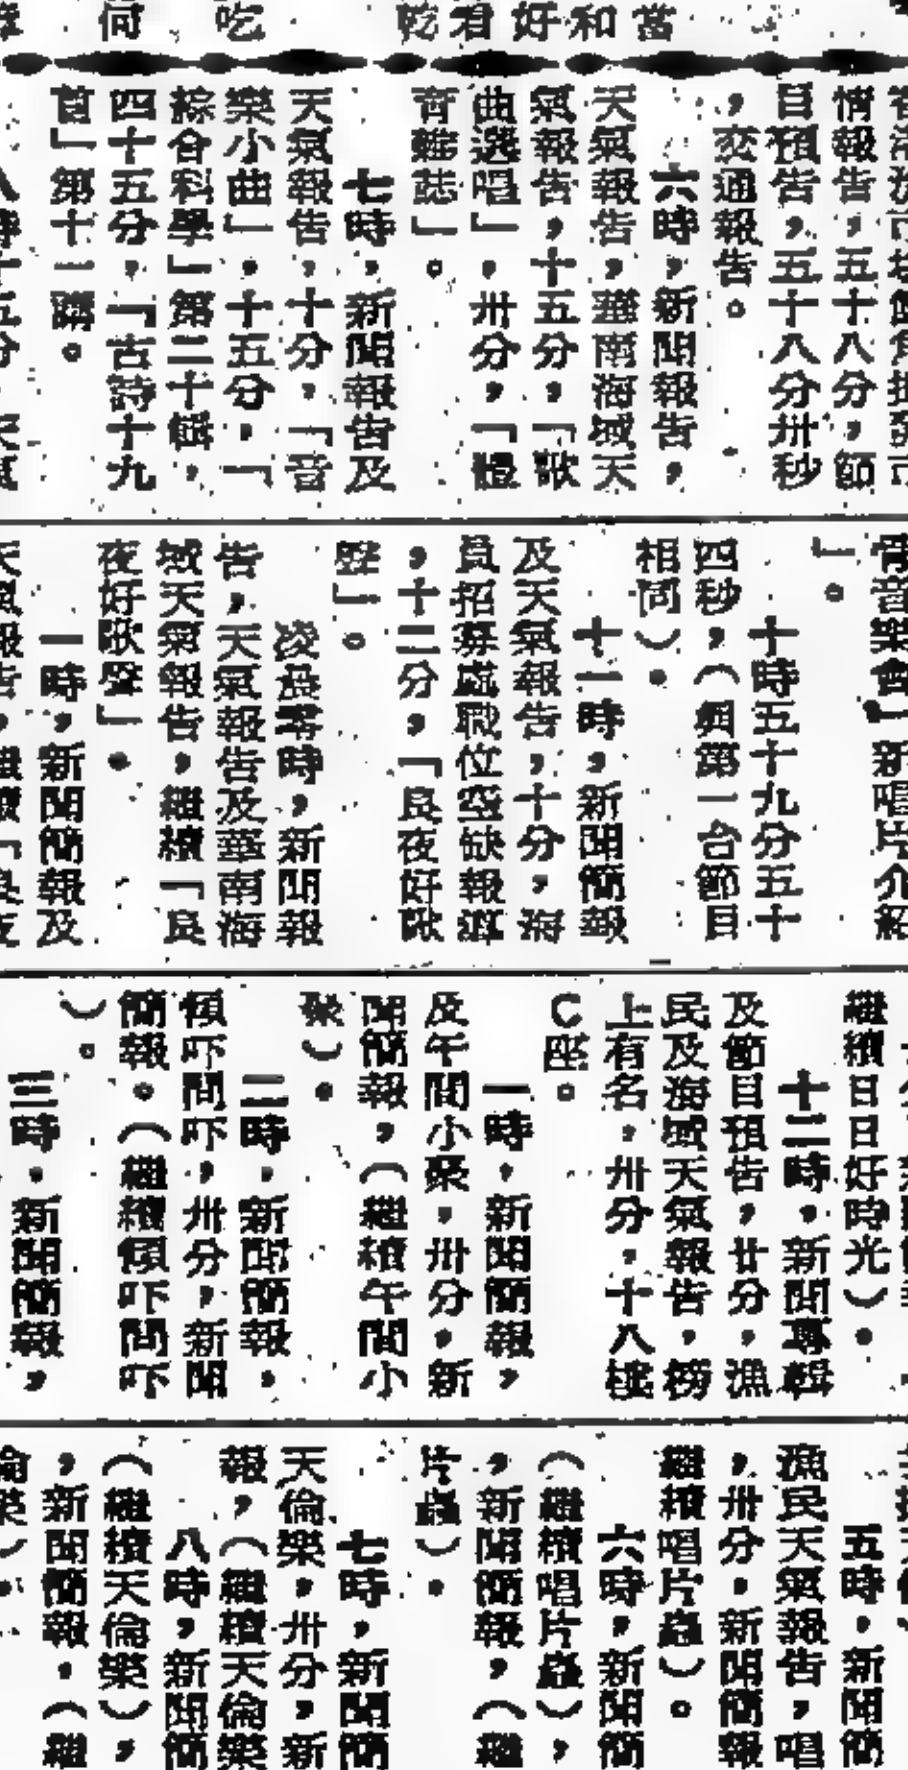 當和好君乾 吃 何
情報告，五十八分，節
目預告，五十八分卅秒
，交通報告。
六時，新聞報告，
天氣報告，華南海域天
氣報告，十五分，「歌
曲選唱」，卅分，「體
育雜誌」。
七時，新聞報告及
天氣報告，十分，「音
樂小曲」，十五分，「
綜合科學」第二十輯，
四十五分，「古詩十九
首」第十一講。
音樂會」新唱片介紹
」。
十時五十九分五十
四秒，（與第一台節目
相同）。
十一時，新聞簡報
及天氣報告，十分，海
員招募處職位空缺報道
，十二分，「良夜好歌
聲」。
凌晨零時，新聞報
告，天氣報告及華南海
域天氣報告，繼續「良
夜好歌聲」。
一時，新聞簡報及
繼續日日好時光）。
十二時，新聞專輯
及節目預告，廿分，漁
民及海域天氣報告，榜
上有名，卅分，十八樓
C座。
一時，新聞簡報，
及午間小聚，卅分，新
聞簡報，（繼續午間小
聚）。
二時，新聞簡報，
傾吓問吓，卅分，新聞
簡報。（繼續傾吓問吓
）。
三時，新聞簡報，
五時，新聞簡
漁民天氣報告，唱
，卅分，新聞簡報
繼續唱片蟲）。
六時，新聞簡
（繼續唱片蟲），
，新聞簡報，（繼
片蟲）。
七時，新聞簡
天倫樂，卅分，新
報，（繼續天倫樂
八時，新聞簡
（繼續天倫樂），
，新聞簡報，（繼